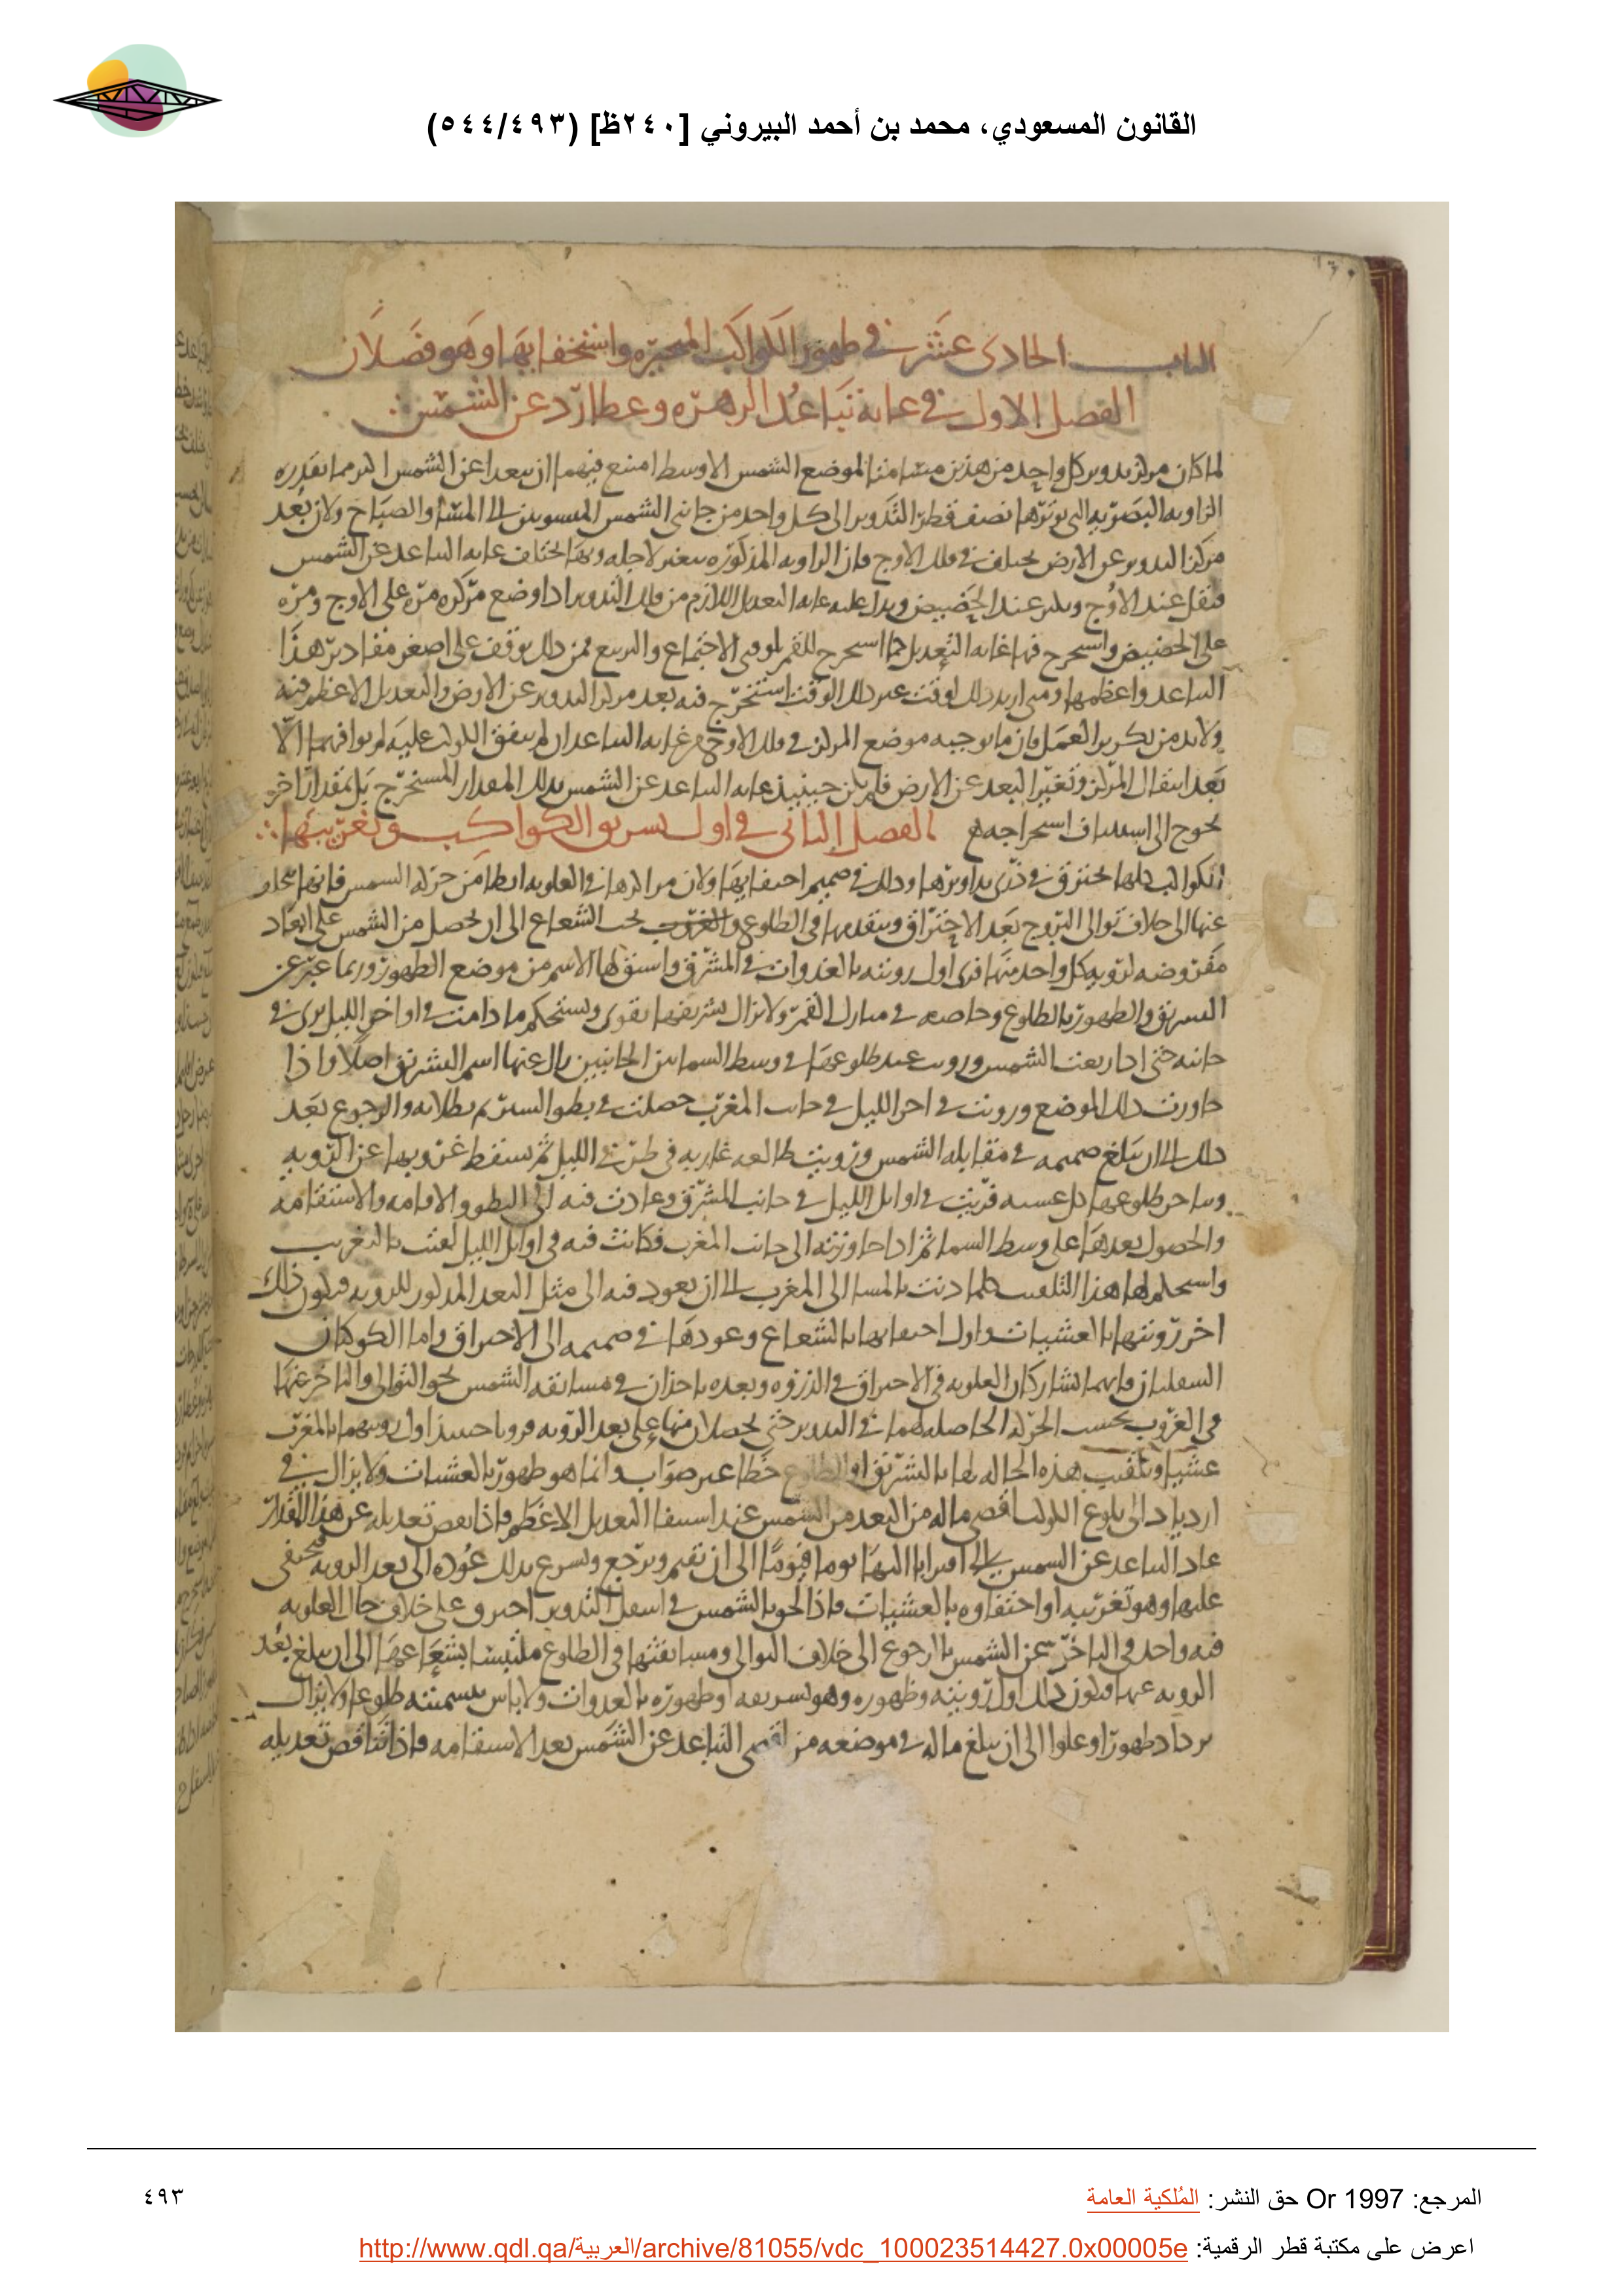 القانون المسعودي، محمد بن أحمد البيروني [٢٤٠ظ] (٥٤٤/٤٩٣)
الباب الحادى عشر في ظهور الكواكب المتحيره واستخفايها وهو فصلان
الفصل الاول في غاية تباعد الزهره وعطارد عن الشمس
لما كان مركز تدوير كل واحد من هذين مسامتا لموضع الشمس الاوسط امتنع فيهما ان يبعدا عن الشمس اكثر مما تقدره
الزاويه البصريه التى يوترها نصف قطر التدوير الى كل واحد من جانبى الشمس المنسوبين الى المساء والصباح ولان بعد
مركز التدوير عن الارض يختلف في فلك الاوج فان الزاويه المذكوره يتغير لاجله وبها يختلف غايه التباعد عن الشمس
فيقل عند الاوج ويكثر عند الحضيض ويدل عليه غايه التعديل اللازم من فلك التدوير اذا وضع مركزه مره على الاوج ومره
على الحضيض واستخرج فيها غايه التعديل كما استخرج للقمر لوقتى الاجتماع والتربيع فمن ذلك يوقف على اصغر مقادير هذا
التباعد واعظمها ومتى اريد ذلك لوقت غير ذلك الوقت استخرج فيه بعد مركز التدوير عن الارض والتعديل الاعظم فيه
ولابد من تكرير العمل فان ما يوجبه موضع المركز في فلك الاوج من غايه التباعد ان لم يتفق الكوكب عليه لم يوافهما الا
بعد انتقال المركز وتغير البعد عن الارض فلم يكن حينيذ غايه التباعد عن الشمس بذلك المقدار المستخرج بل بمقدار اخر
يحوج الى استيناف استخراجه الفصل الثانى في اول تشريق الكواكب وتغريبها
الكواكب كلها تحترق في ذرى تداويرها وذلك في صميم اختفايها ولان مراكزها في العلويه ابطا من حركه الشمس فانها تنحاز
عنها الى خلاف توالى البروج بعد الاحتراق ويتقدمها في الطلوع والغروب تحت الشعاع الى ان يحصل من الشمس على ابعاد
مفروضه لرويه كل واحد منها فيرى اول رويته بالغدوات في المشرق واشتق لها الاسم من موضع الظهور وربما عبر عن
التشريق والظهور بالطلوع وخاصه في منازل القمر ولا يزال تشريقها يقوى ويستحكم ما دامت في اواخر الليل يرى في
جانبه حتى اذا ربعت الشمس ورويت عند طلوعها في وسط السما بين الجانبين زال عنها اسم التشريق اصلا واذا
جاوزت ذلك الموضع ورويت في اخر الليل في جانب المغرب حصلت في بطو السير ثم بطلانه والرجوع بعد
ذلك الى ان يبلغ صميمه في مقابله الشمس ورويت طالعه غاربه في طرفى الليل ثم يسقط غروبها عن الرويه
طلوعها كل عشيه فريت في اوايل الليل في جانب المشرق وعادت فيه الى البطو والاقامه والاستقامه
والحصول بعدها على وسط السما ثم اذا جاوزته الى جانب المغرب فكانت فيه في اوايل الليل لقبت بالتغريب
واستحكم لها هذا التلقيب كلما دنت بالمسا الى المغرب الى ان يعود فيه الى مثل البعد المذكور للرويه فيكون ذلك
اخر رويتها بالعشيات واول اختفايها بالشعاع وعودها في صميمه الى الاحتراق واما الكوكبان
السفليان فانهما يشاركان العلويه في الاحتراق في الذروه وبعده ياخذان في مسابقه الشمس نحو التوالى والتاخر عنها
في الغروب بحسب الحركه الحاصله لهما في التدوير حتى يحصلان منها على بعد الرويه فرويا حينيذ اول رويتهما بالمغرب
عشيا وتلقيب هذه الحاله لها بالتشريق او الطلوع خطا غير صواب وانما هو ظهور بالعشيات ولا يزال في
ازدياد الى بلوغ الكوكب اقصى ماله من البعد من الشمس عند استيفا التعديل الاعظم فاذا نقص تعديله عن هذا المقدار
عاد التباعد عن الشمس الى اقترابا اليها يوما فيوما الى ان تقيم ويرجع ويسرع بذلك عوده الى بعد الرويه فيختفى
عليها وهو تغريبه او اختفاوه بالعشيات فاذا لحق بالشمس في اسفل التدوير احترق وعلى خلاف حال العلويه
فيه واحد في التاخر عن الشمس بالرجوع الى خلاف التوالى ومسابقتها في الطلوع ملتبسا بشعاعها الى ان يبلغ بعد
الرويه عنها فيكون ذلك اول رويته وظهوره وهو تشريقه او ظهوره بالغدوات ولا باس بتسميته طلوعا ولا يزال
يزداد ظهورا وعلوا الى ان يبلغ ماله في موضعه من اقصى التباعد عن الشمس بعد الاستقامه فاذا تناقص تعديله
المرجع: Or 1997 حق النشر: المُلكية العامة
٤٩٣
اعرض على مكتبة قطر الرقمية: http://www.qdl.qa/العربية/archive/81055/vdc_100023514427.0x00005e